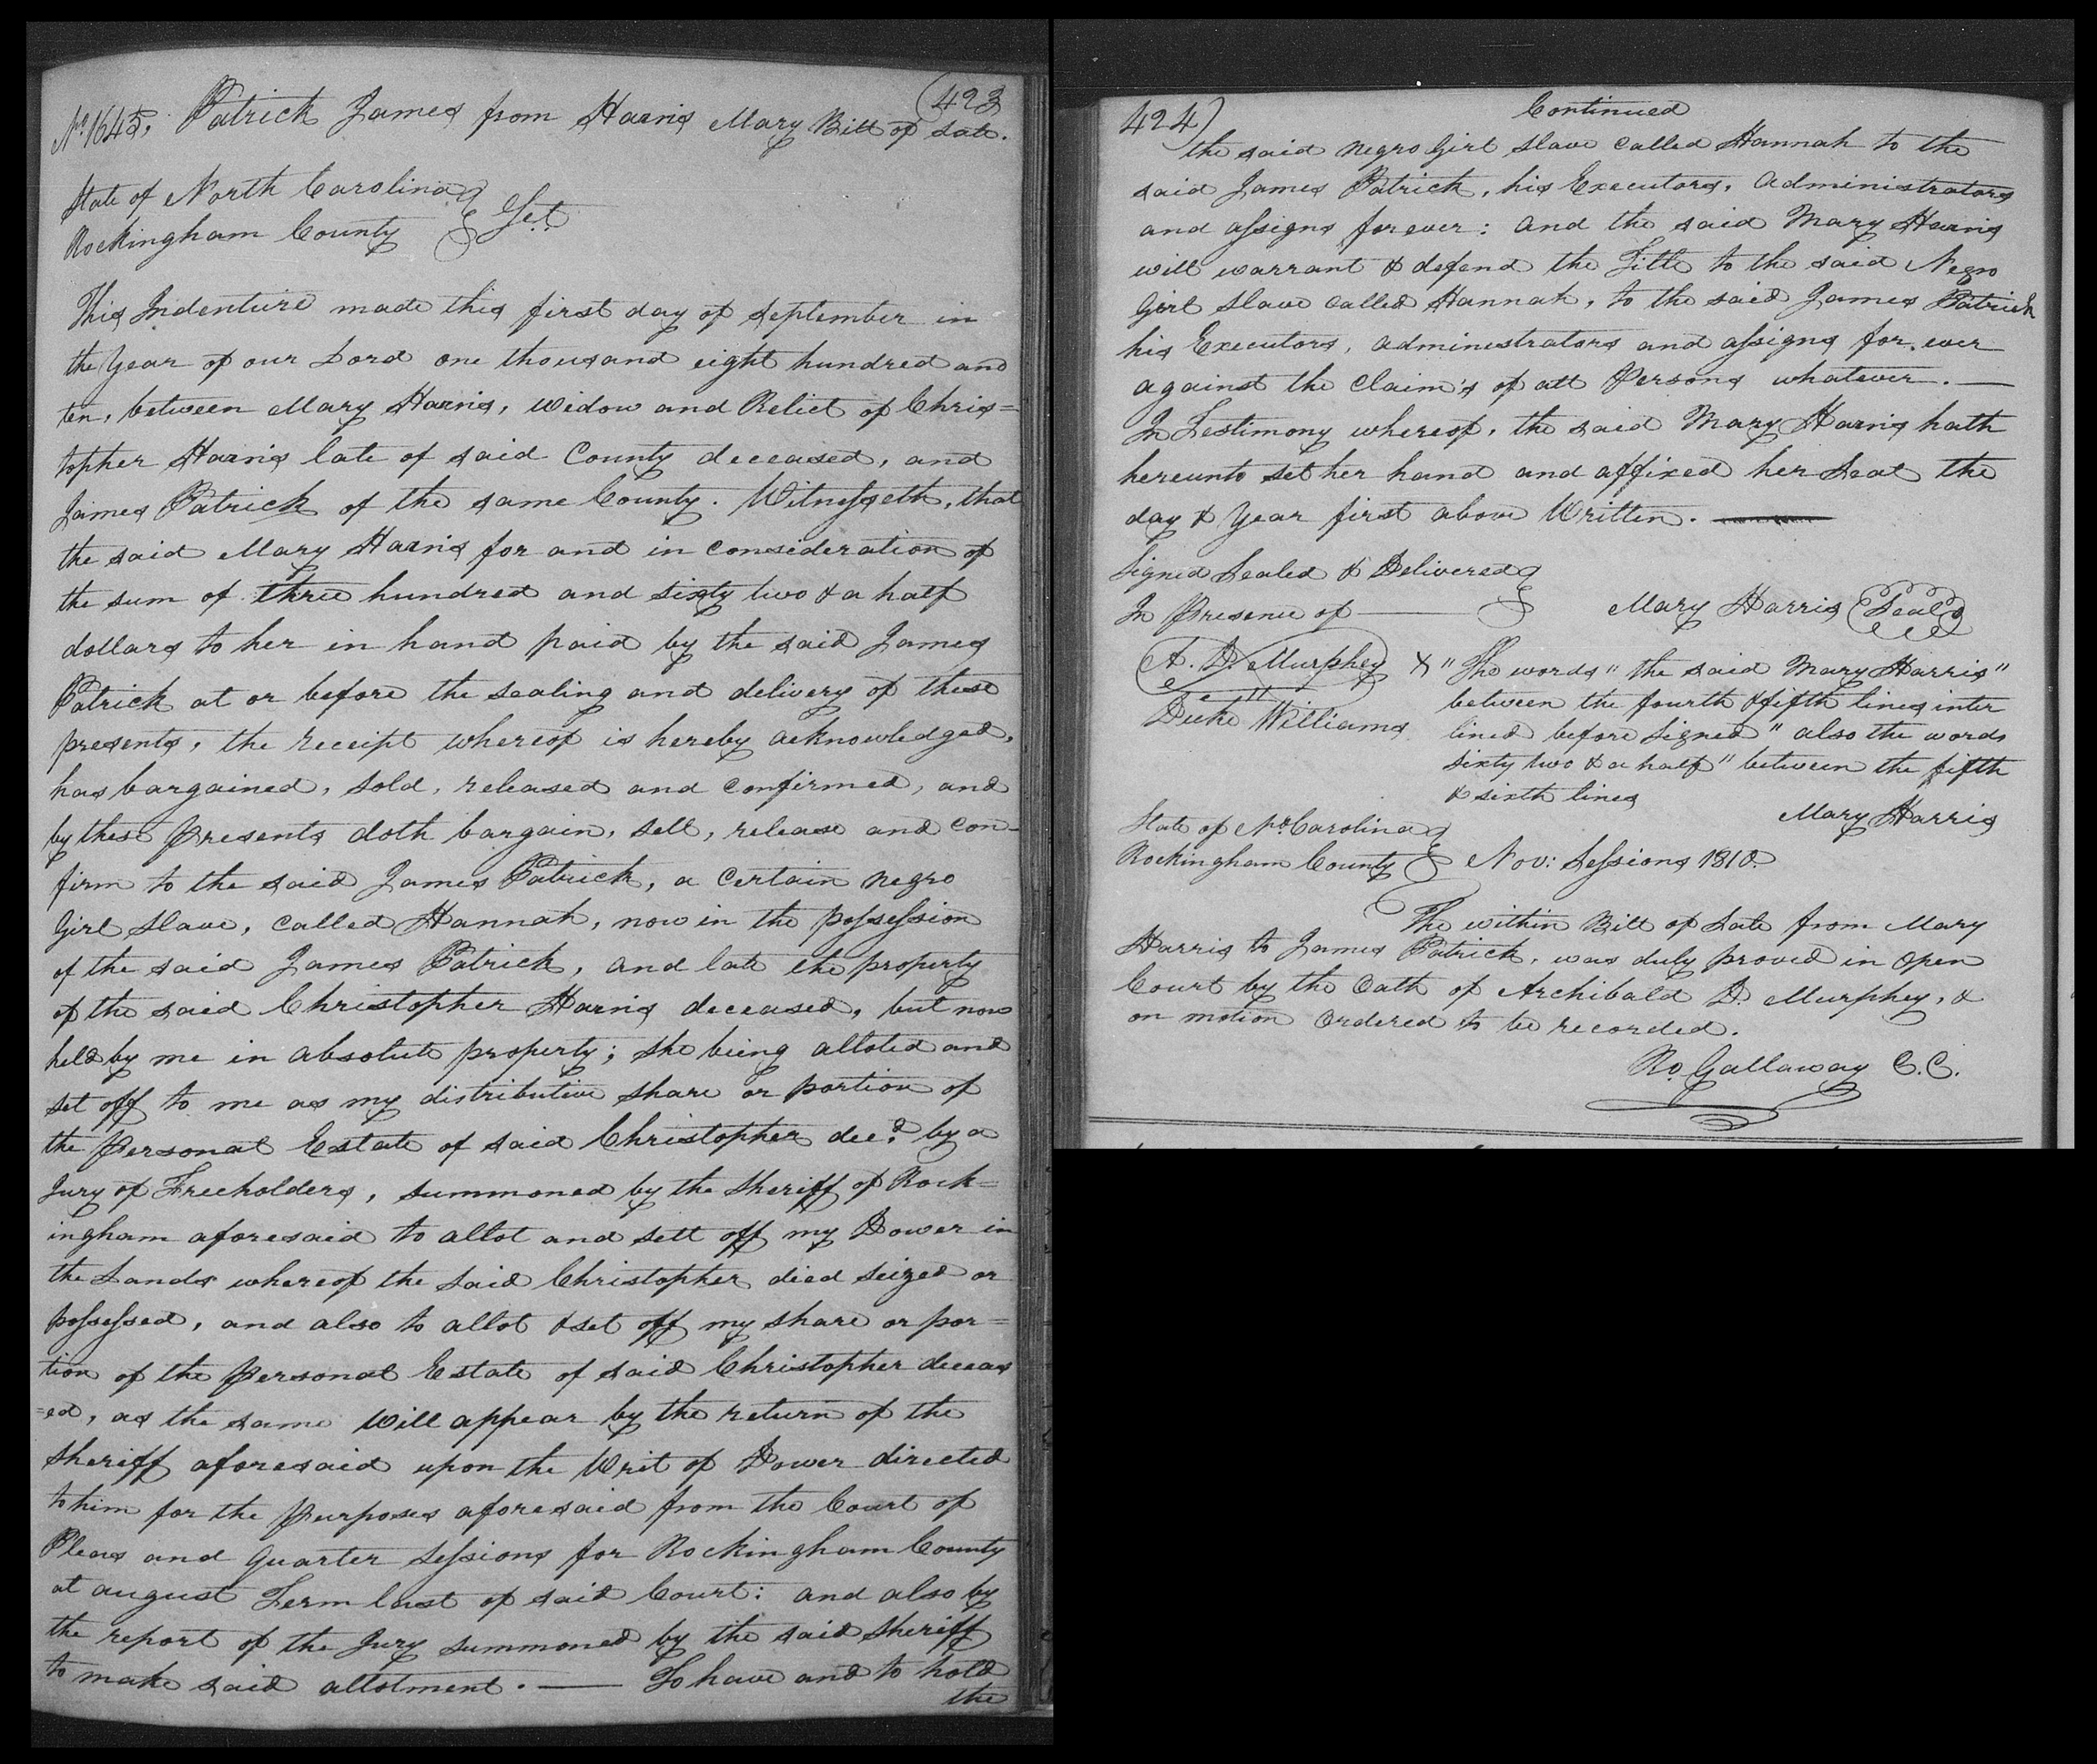 (423
No. 1645, Patrick James from Harris Mary Bill of Sale.
State of North Carolina
Rockingham County } Sct
This Indenture made this first day of September in
the Year of our Lord one thousand eight hundred and
ten, between Mary Harris, widow and Relict of Chris=
topher Harris late of said County deceased, and
James Patrick of the same County. Witnesseth, that
the said Mary Harris for and in consideration of
the sum of three hundred and sixty two & a half
dollars to her in hand paid by the said James
Patrick at or before the sealing and delivery of these
presents, the receipt whereof is hereby acknowledged,
has bargained, sold, released and confirmed, and
by these presents doth bargain, sell, release and con-
firm to the said James Patrick, a certain negro
Girl Slave, called Hannah, now in the possession
of the said James Patrick, and late the property
of the said Christopher Harris deceased, but now
held by me in absolute property; she being alloted and
set off to me as my distributive share or portion of
the personal Estate of said Christopher decd. by a
Jury of Freeholders, summoned by the Sheriff of Rock=
ingham aforesaid to allot and sett off my Dower in
the Lands whereof the said Christopher died seized or
possessed, and also to allot & set off my share or por=
tion of the personal Estate of said Christopher deceas
=ed, as the same will appear by the return of the
Sheriff aforesaid upon the Writ of Dower directed
to him for the purposes aforesaid from the Court of
Pleas and Quarter Sessions for Rockingham County
at august Term last of said Court: and also by
the report of the Jury summoned by the said Sheriff
to make said allotment. — To have and to hold
the
424)
Continued
the said negro Girl Slave called Hannah to the
said James Patrick, his Executors, administrators
and assigns forever: and the said Mary Harris
will warrant & defend the Title to the said Negro
Girl Slave called Hannah, to the said James Patrick
his Executors, administrators and assigns for.ever
against the claim's of all Persons whatever. —
In Testimony whereof, the said Mary Harris hath
hereunto set her hand and affixed her Seal the
day & Year first above Written.
Signed Sealed & Delivered
In Presence of — } Mary Harris (Seal)
A. D. Murphey X "The words" the said Mary Harris"
between the fourth & fifth lines inter
Duke Williams lined before Signed" also the words
sixty two & a half" between the fifth
& sixth lines
Mary Harris
State of No. Carolina
Rockingham County } Nov: Sessions 1810.
The within Bill of Sale from Mary
Harris to James Patrick, was duly proved in open
Court by the Oath of Archibald D. Murphey, &
on motion ordered to be recorded.
Ro. Gallaway C.C.